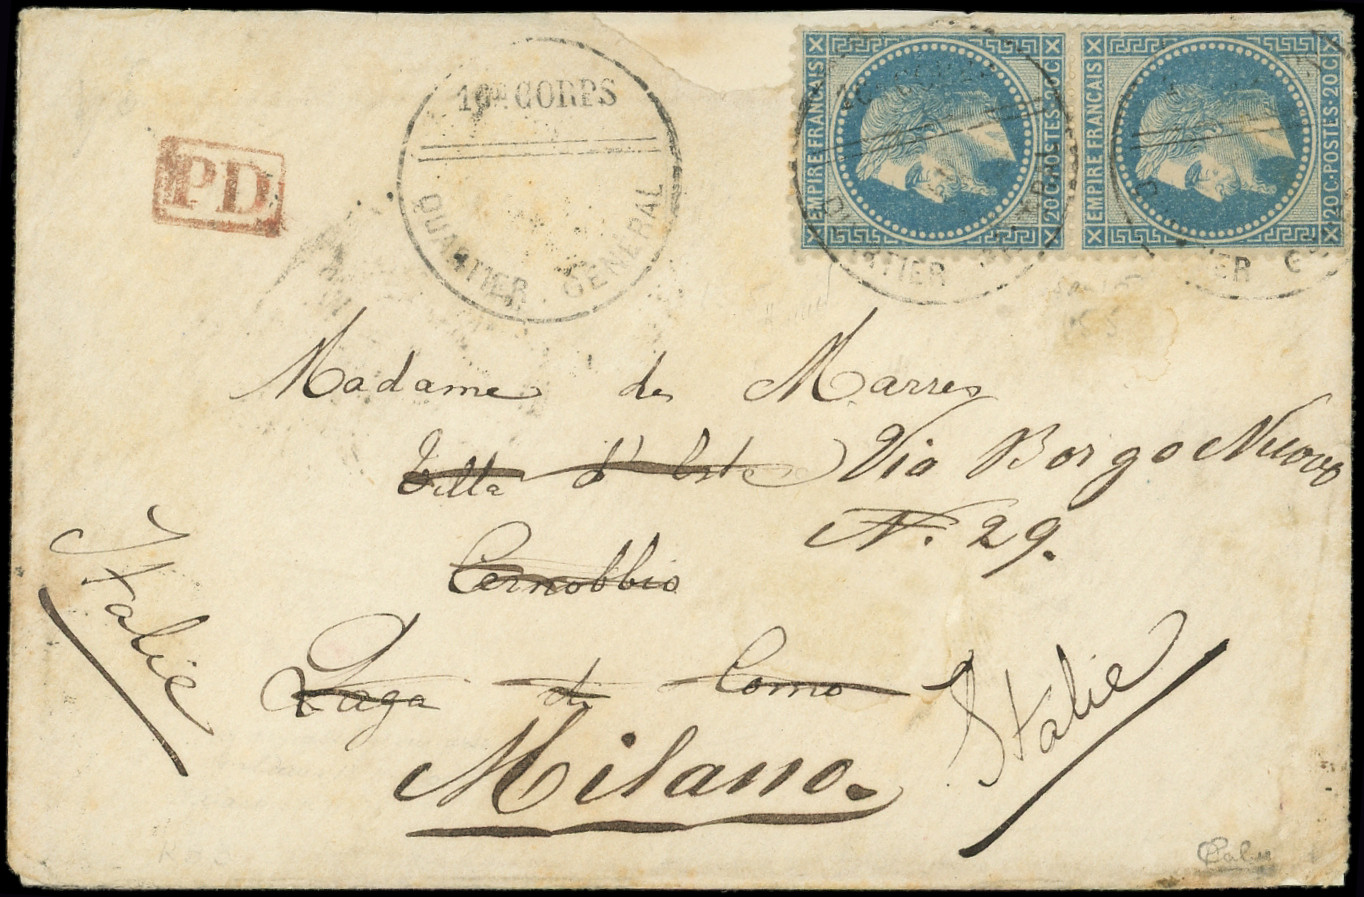 16ᴱ CORPS
QUARTIER GENERAL
PD
EMPIRE FRANÇAIS
20 C·POSTES·20 C
EMPIRE FRANÇAIS
20 C·POSTES·20 C
QUARTIER
Madame de Marres
Villa d'Este Via Borgo Nuovo
N. 29.
Cernobbio
Lago di Como
Milano.
Italie
Italie